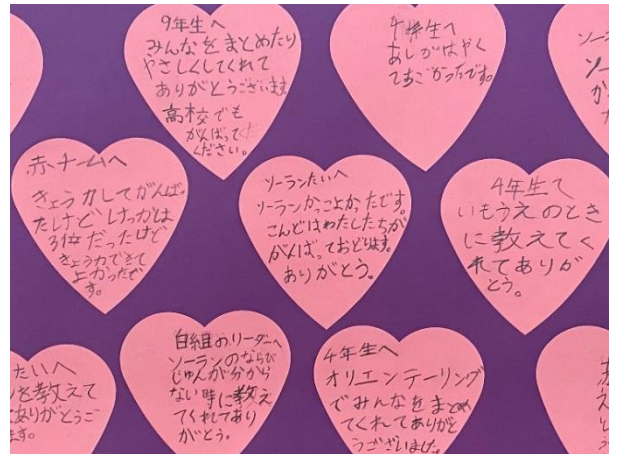 9年生へ
みんなをまとめたり
やさしくしてくれて
ありがとうございます。
高校でも
がんばってく
ださい。
年生へ
あしがはやく
てすごかったです。
ソー
ソー
か
赤チームへ
きょう力してがんばっ
たけど けっかは
3位だったけど
きょう力できて
よかったで
す。
ソーランたいへ
ソーランかっこよかったです。
こんどはわたしたちが
がんばっておどります。
ありがとう。
4年生て
いもうえのとき
に教えてく
れてありが
とう。
たいへ
を教えて
ありがとうご
ます。
白組のリーダーへ
ソーランのならび
じゅんが分から
ない時に教え
てくれてあり
がとう。
4年生へ
オリエンテーリング
でみんなをまとめ
てくれてありがと
うございました。